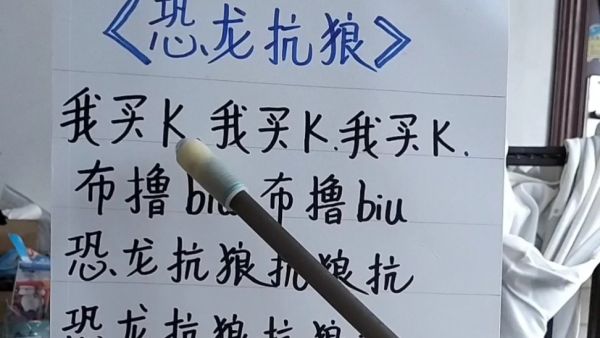 《恐龙抗狼》
我买K.我买K.我买K.
布撸biu布撸biu
恐龙抗狼抗狼抗
恐龙抗狼抗狼